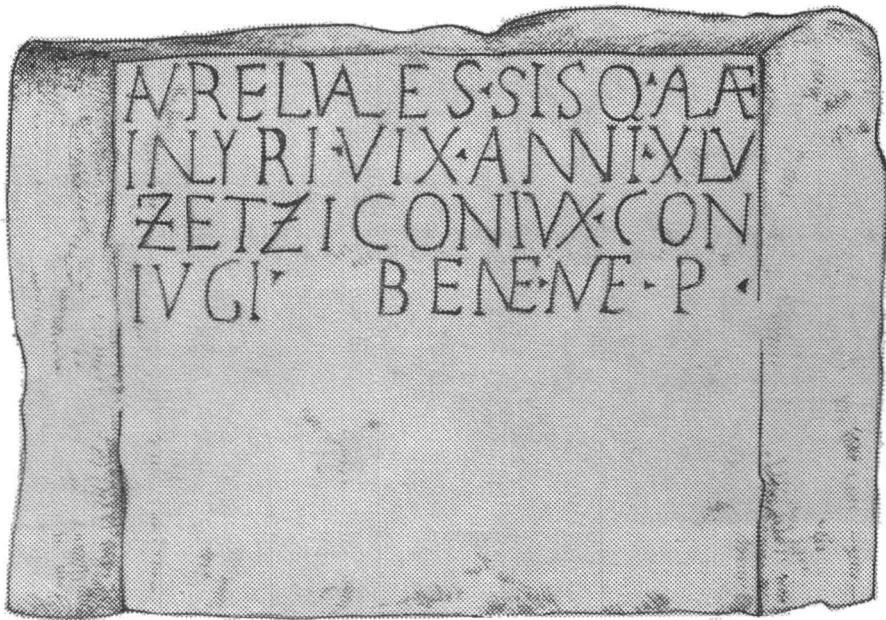 AVRELVALES·SISQ·ALAE
INLYRI·VIX·ANNI·XLV
ZETZI CONIVX·CON
IVGI· BENE·ME·P·